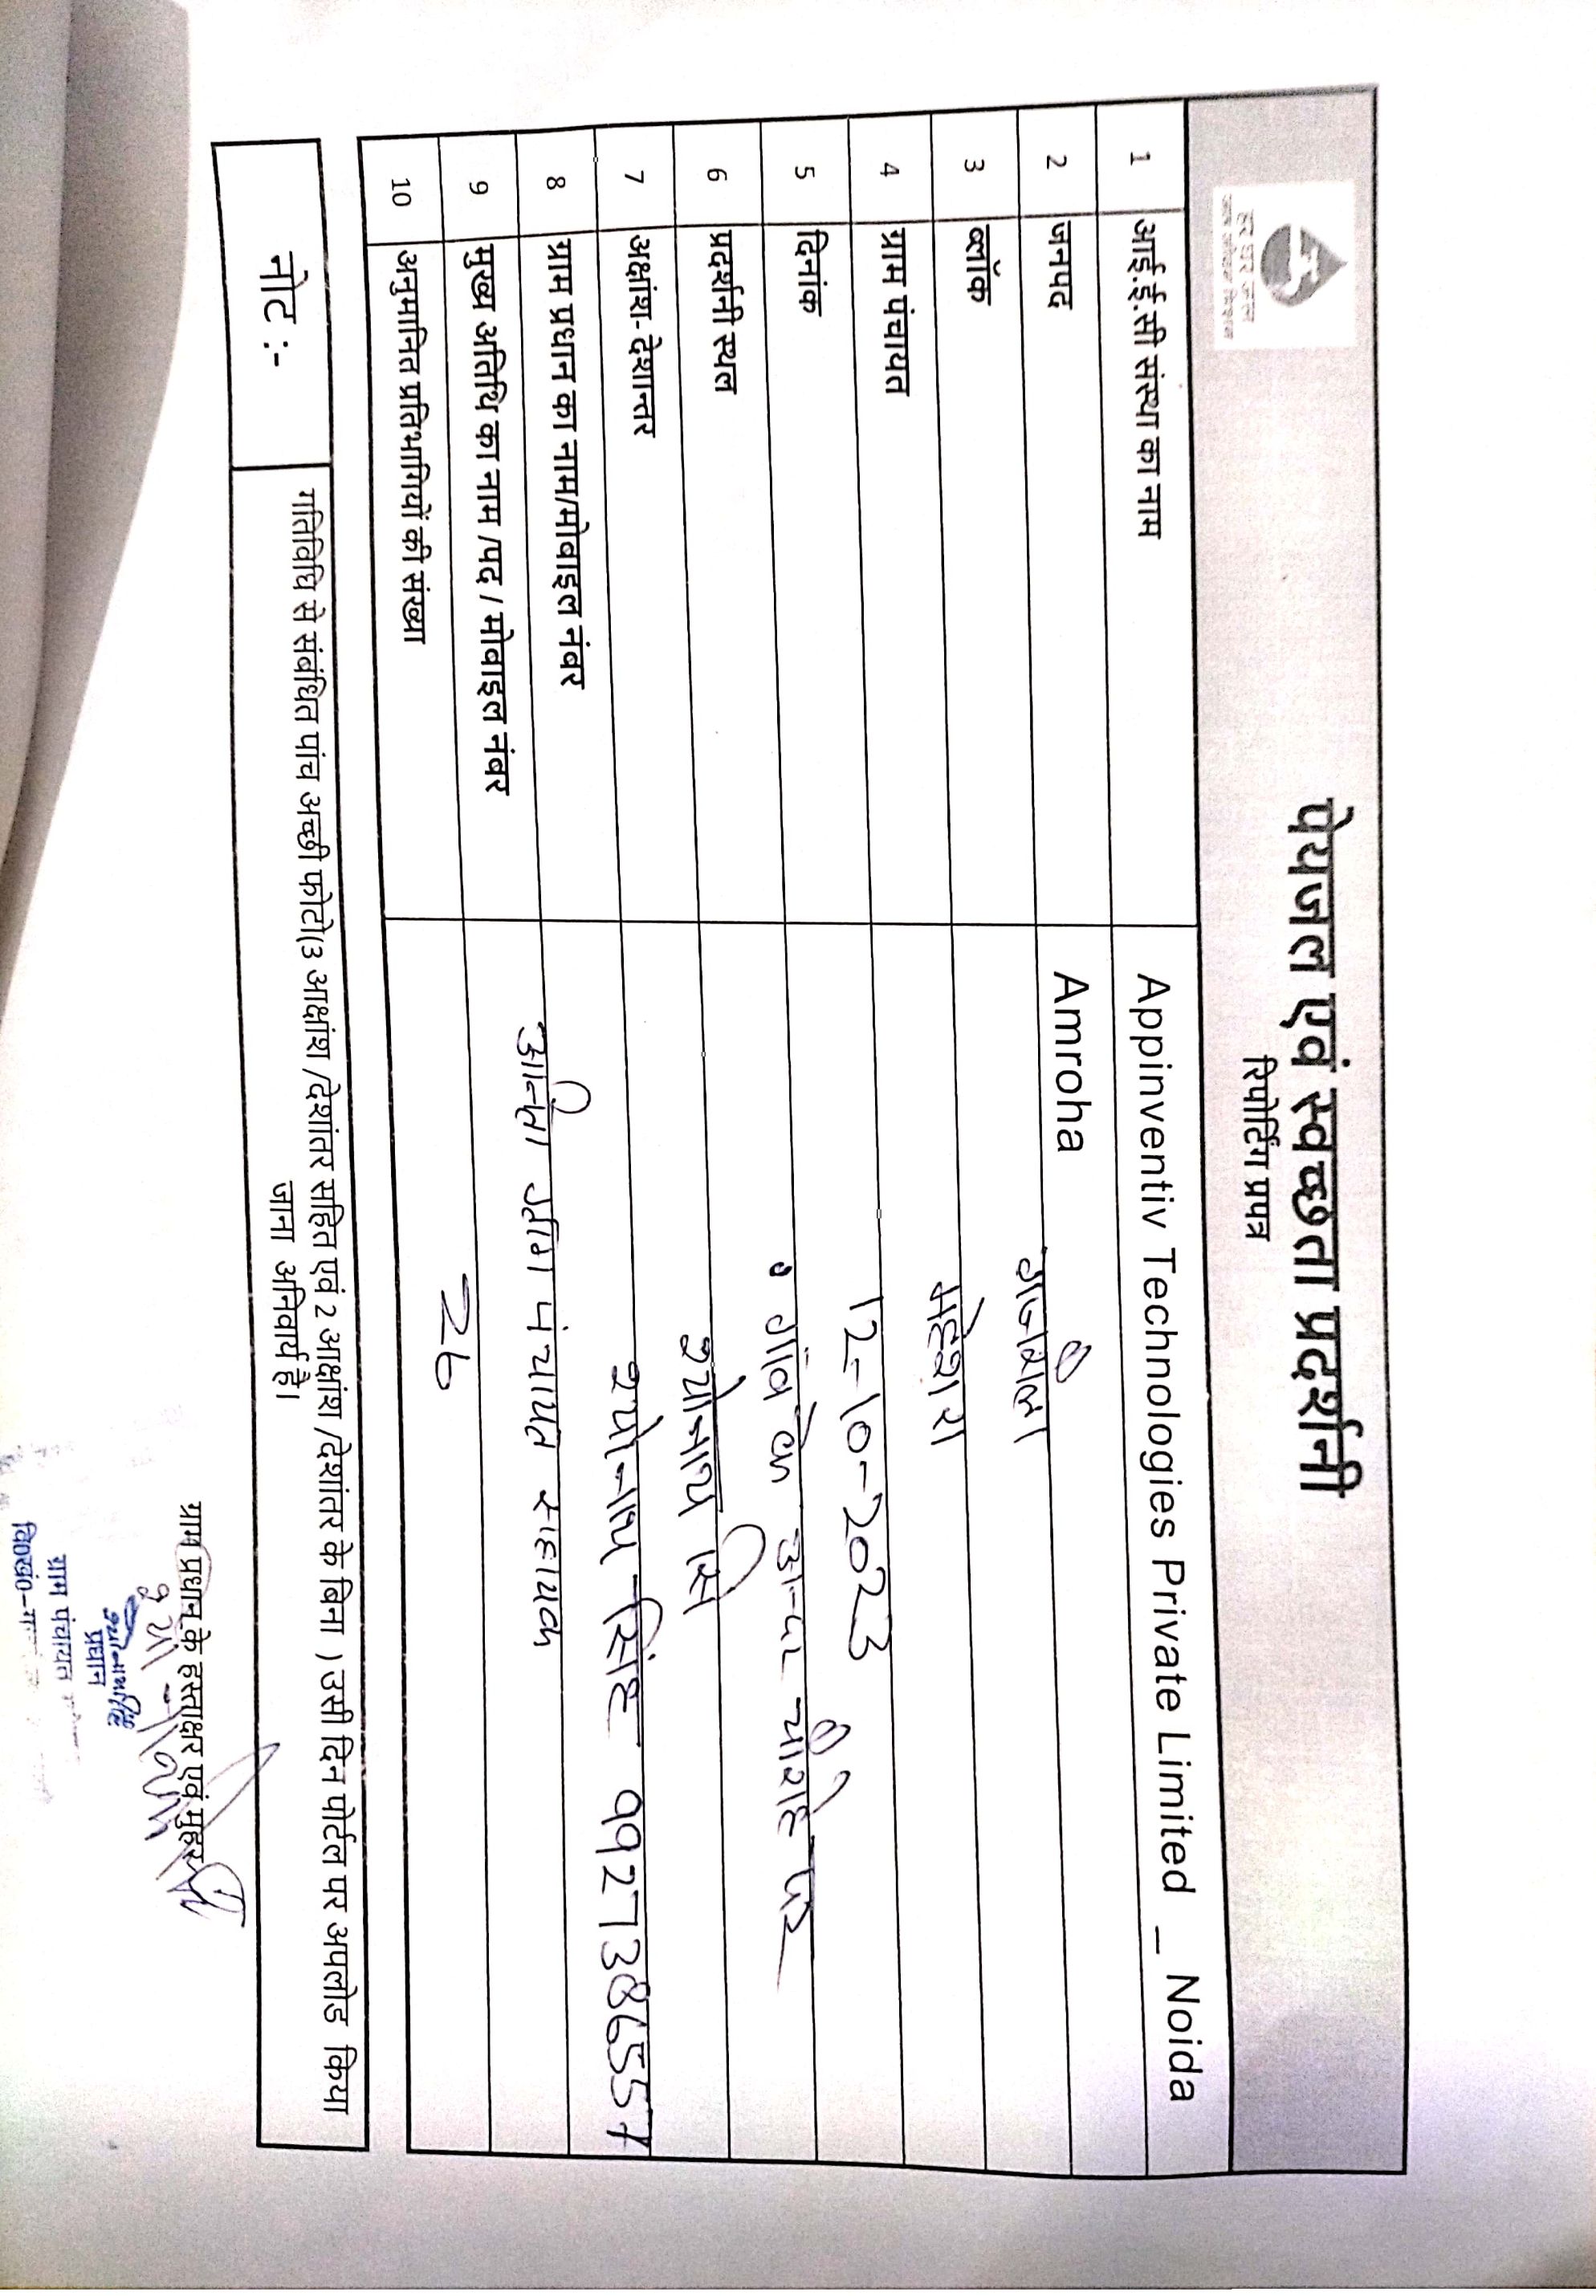 हर घर जल
जल जीवन मिशन
पेयजल एवं स्वच्छता प्रदर्शनी
रिपोर्टिंग प्रपत्र
1 आई.ई.सी संस्था का नाम Appinventiv Technologies Private Limited _ Noida
2 जनपद Amroha
3 ब्लॉक गजरौला
4 ग्राम पंचायत मोहरका
5 दिनांक 12-10-2023
6 प्रदर्शनी स्थल गांव के अन्दर चौराहे पर
7 अक्षांश-देशान्तर
8 ग्राम प्रधान का नाम/मोबाइल नंबर सिंह 9927386557
9 मुख्य अतिथि का नाम /पद / मोबाइल नंबर पंचायत सहायक
10 अनुमानित प्रतिभागियों की संख्या 26
नोट :-
गतिविधि से संबंधित पांच अच्छी फोटो(3 आक्षांश /देशांतर सहित एवं 2 आक्षांश /देशांतर के बिना ) उसी दिन पोर्टल पर अपलोड किया
जाना अनिवार्य है।
ग्राम प्रधान के हस्ताक्षर एवं मुहर
प्रधान
ग्राम पंचायत
वि०खं०-ग